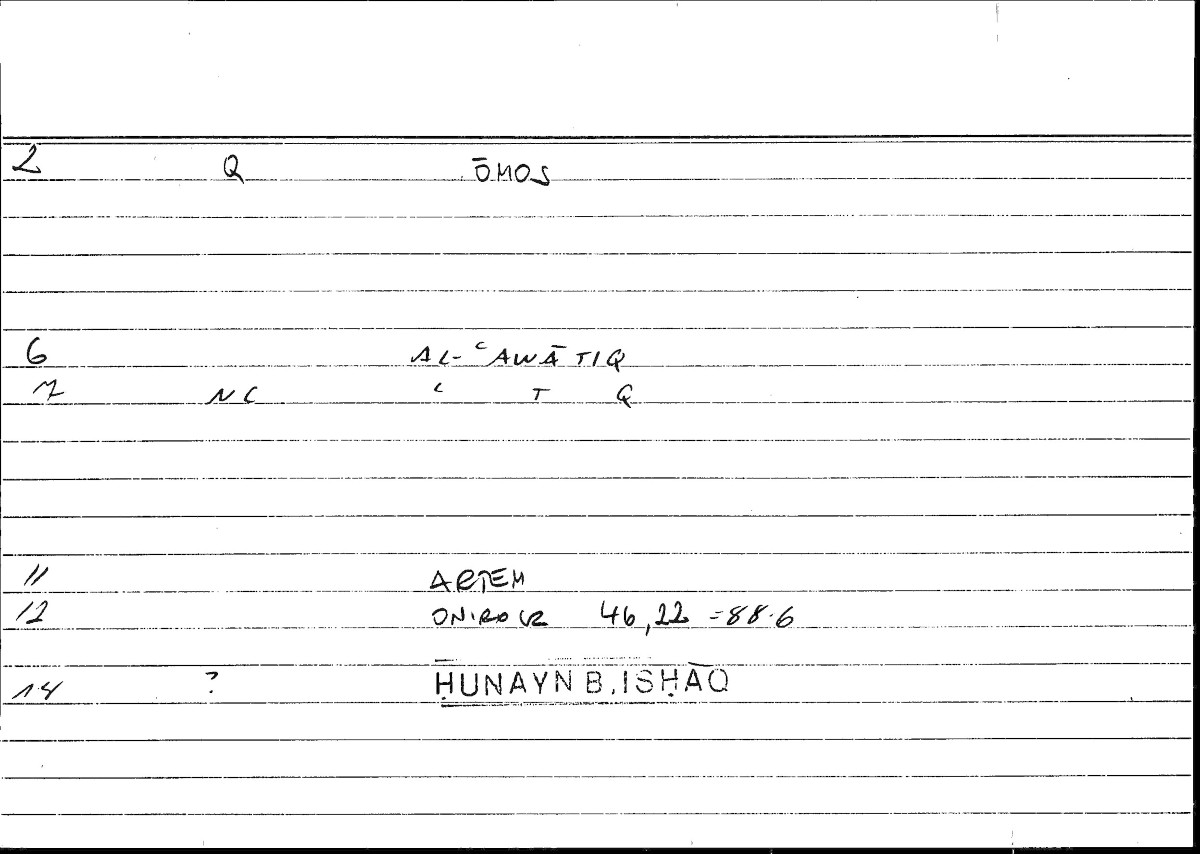 2 Q ŌMOS
6 AL-ʿAWĀTIQ
7 NC ʿ T Q
11 ARTEM
12 ONIROCR 46,22 =88.6
14 ? ḤUNAYN B. ISḤĀQ